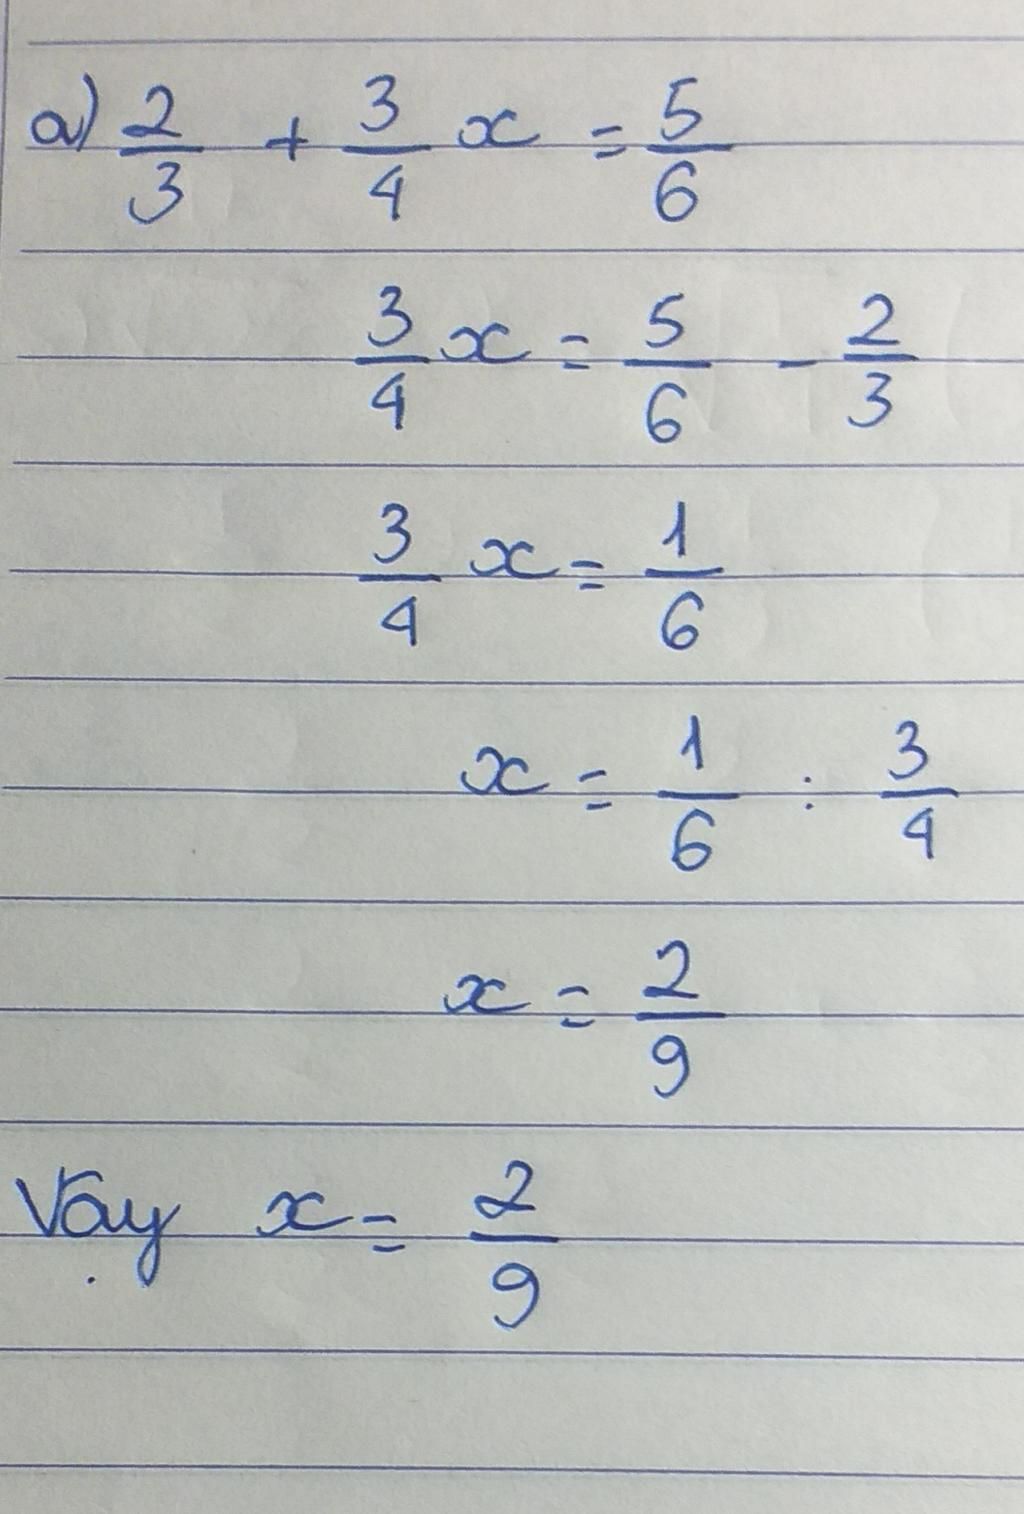 a) 2/3 + 3/4 x = 5/6
3/4 x = 5/6 - 2/3
3/4 x = 1/6
x = 1/6 : 3/4
x = 2/9
Vậy x = 2/9